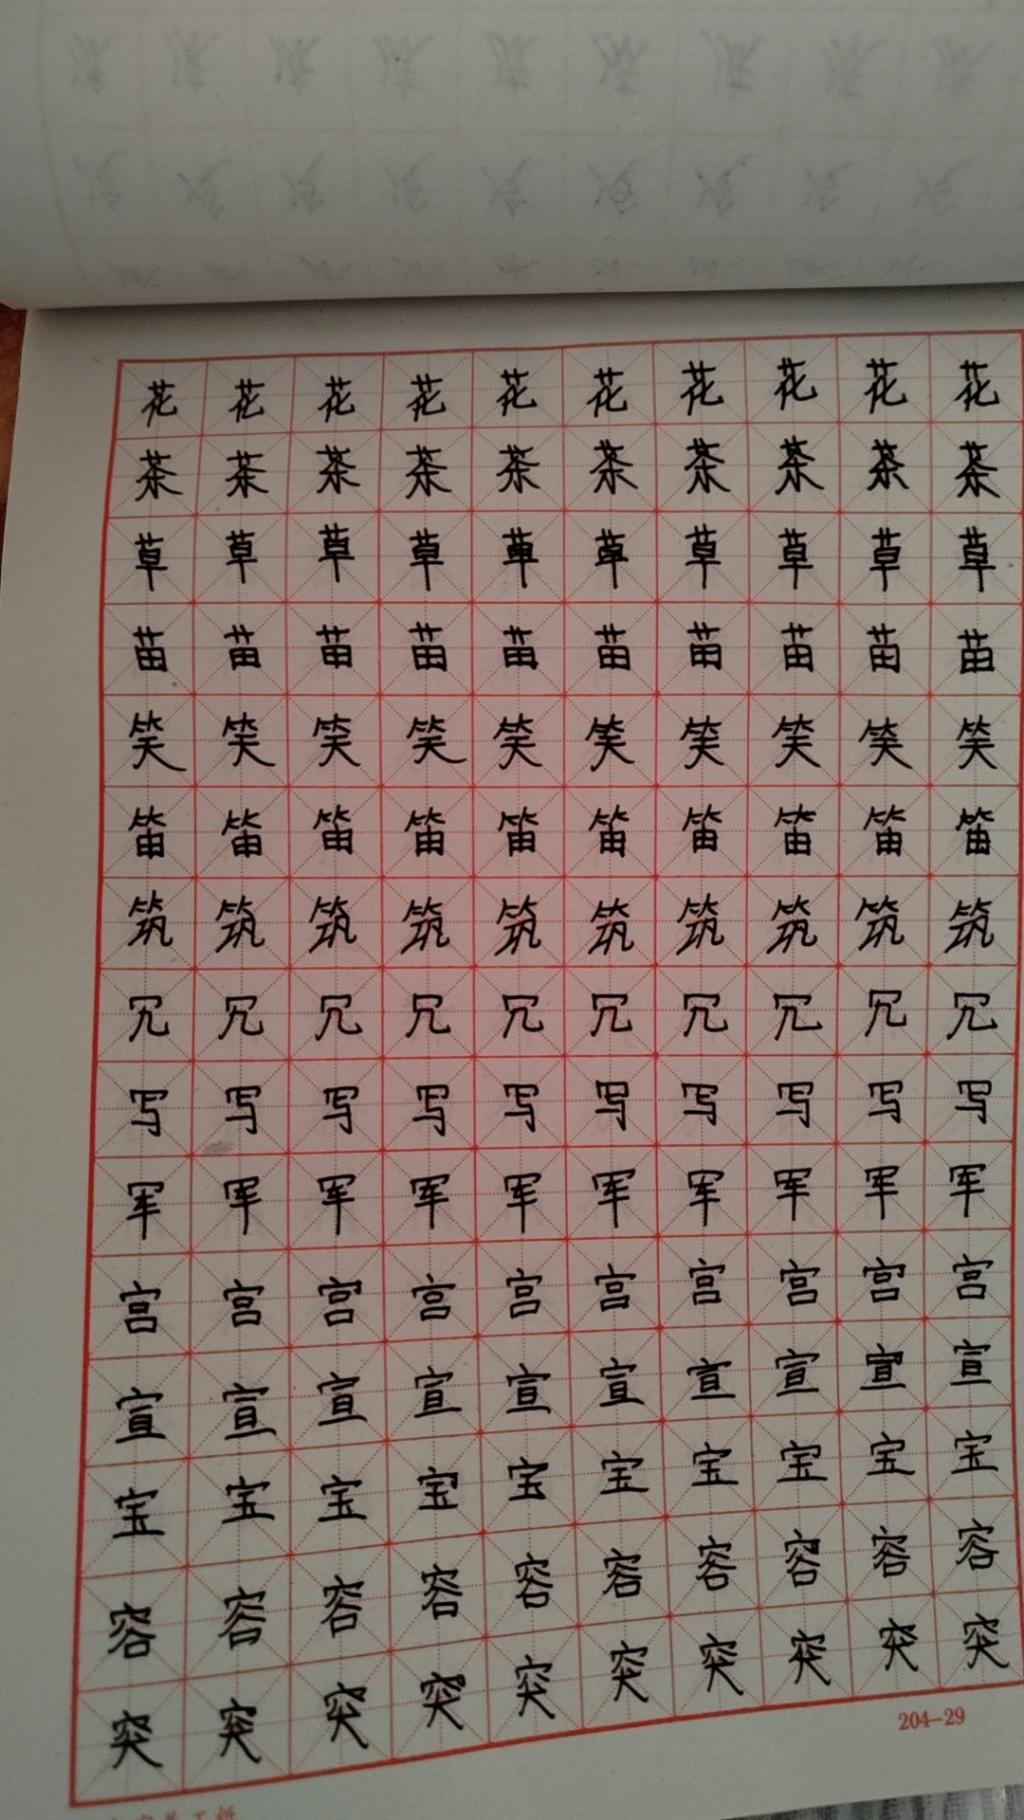 花花花花花花花花花花
茶茶茶茶茶茶茶茶茶茶
草草草草草草草草草草
苗苗苗苗苗苗苗苗苗苗
笑笑笑笑笑笑笑笑笑笑
笛笛笛笛笛笛笛笛笛笛
筑筑筑筑筑筑筑筑筑筑
冗冗冗冗冗冗冗冗冗冗
写写写写写写写写写写
军军军军军军军军军军
宫宫宫宫宫宫宫宫宫宫
宣宣宣宣宣宣宣宣宣宣
宝宝宝宝宝宝宝宝宝宝
容容容容容容容容容容
突突突突突突突突突突
204-29